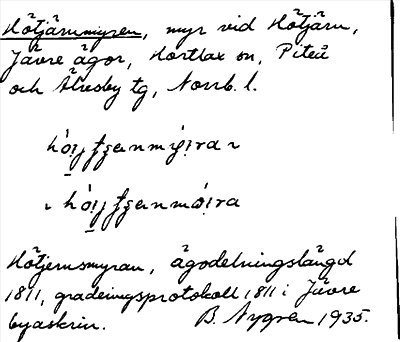 Hötjärnmyren, myr vid Hötjärn,
Jävre ägor, Hortlax sn, Piteå
och Älvsby tg, Norrb. l.
Hötjernsmyran, ägodelningslängd
1811, graderingsprotokoll 1811 i Jävre
byaskrin. B. Nygren 1935.